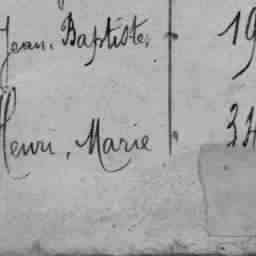 Jean, Baptiste, 19
Henri, Marie 34